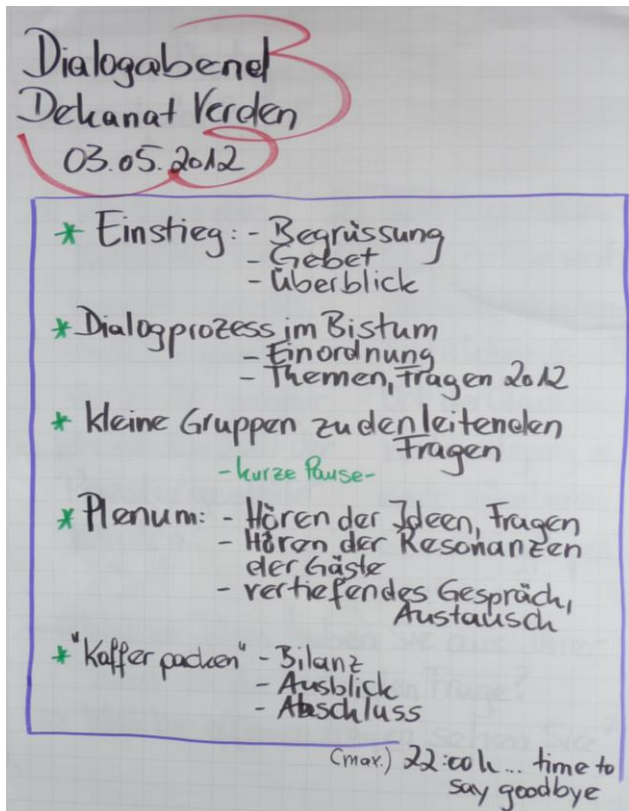 Dialogabend
Dekanat Verden
03.05.2012
* Einstieg: - Begrüssung
- Gebet
- Überblick
* Dialogprozess im Bistum
- Einordnung
- Themen, Fragen 2012
* kleine Gruppen zu den leitenden
Fragen
- kurze Pause -
* Plenum: - Hören der Ideen, Fragen
- Hören der Resonanzen
der Gäste
- vertiefendes Gespräch,
Austausch
* "Koffer packen" - Bilanz
- Ausblick
- Abschluss
(max.) 22:00 h... time to
say goodbye